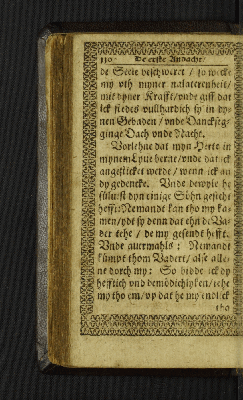 110 De erste Andacht/
de Seele beschweret / so wecke
my vth myner nalatenheit/
mit dyner Krafft/vnde giff dat
ick stedes vullhardich sy in dy-
nen Gebaden / vnde Danckseg-
ginge Dach vnde Nacht.
Vorlehne dat myn Herte in
mynem Lyue berne/vnde dat ick
angesticket werde/wenn ick an
dy gedencke. Vnde dewyle he
sülvst dyn einige Söhn gesecht
hefft: Nemandt kan tho my ka-
men/ydt sy denn dat ehn de Va-
der tehe / de my gesendt hefft.
Vnde auermahls: Nemandt
kümpt thom Vader/ alse alle-
ne dorch my: So bidde ick dy
hefftich vnd demödichlyken/tehe
my tho em/vp dat he my endlick
tho